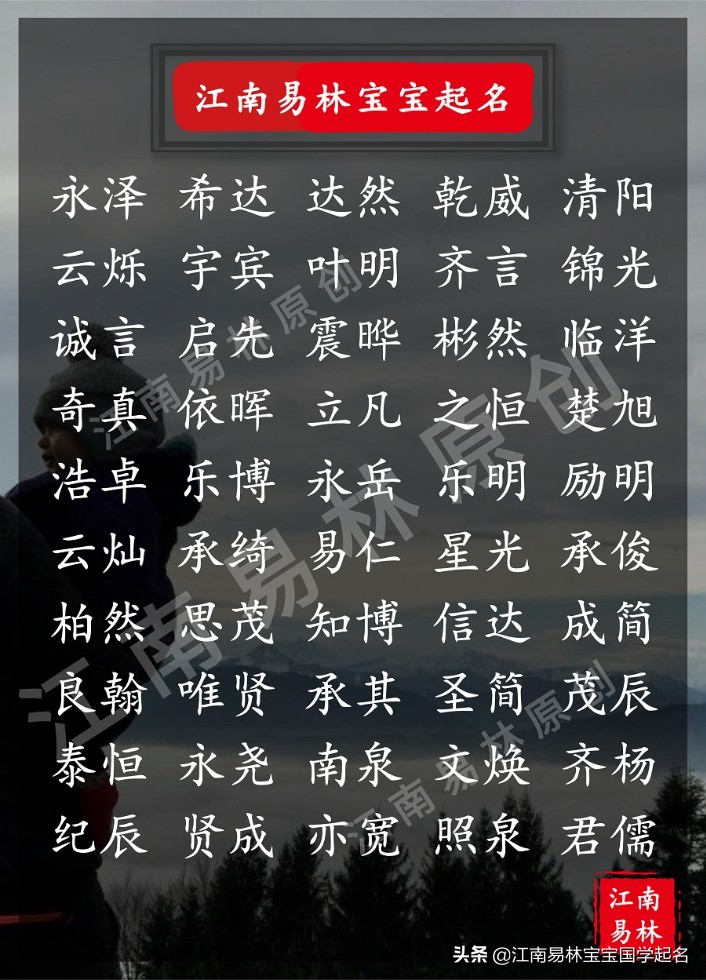 江南易林宝宝起名
永泽 希达 达然 乾威 清阳
云烁 宇宾 叶明 齐言 锦光
诚言 启先 震晔 彬然 临洋
奇真 依晖 立凡 之恒 楚旭
浩卓 乐博 永岳 乐明 励明
云灿 承绮 易仁 星光 承俊
柏然 思茂 知博 信达 成简
良翰 唯贤 承其 圣简 茂辰
泰恒 永尧 南泉 文焕 齐杨
纪辰 贤成 亦宽 照泉 君儒
江南易林原创
江南易林原创
江南易林原创
江南
易林
头条 @江南易林宝宝国学起名